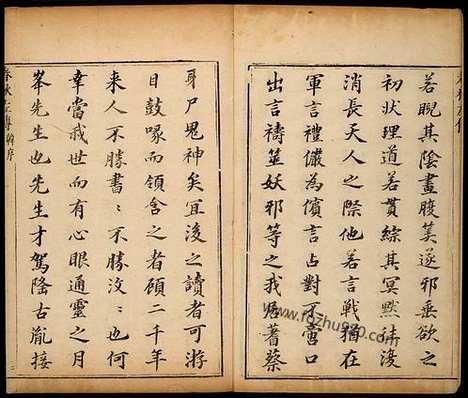 若睨其陰畫腹美遂邪垂欲之
初状理道若貫綜其冥黙註後
消長天人之際他若言戰猶在
軍言禮儼為儐言占對不啻口
出言禱筮妖邪等之我居蓍蔡
身尸鬼神矣宜後之讀者可游
目鼓喙而領含之者顧二千年
来人不勝書：不勝汶：也何
幸當我世而有心眼通靈之月
峯先生也先生才駕隆古胤接
春秋左傳 序
二
www.fozhu920.com